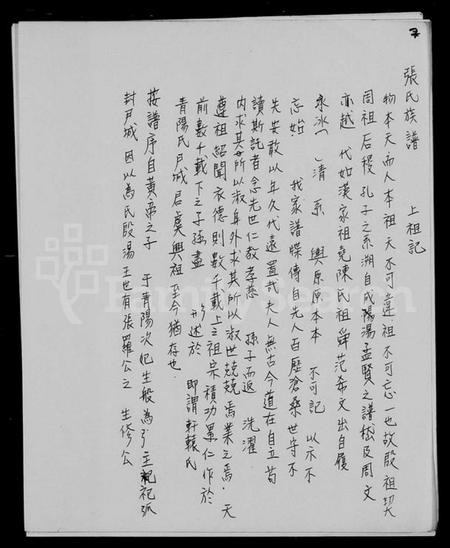 張氏族譜 上祖記
物本天而人本祖天不可違祖不可忘一也故殷祖契
周祖后稷孔子之系溯自成湯孟賢之譜㮣及周文
亦越 代如漢家祖堯陳氏祖舜范希文出自履
永冰 清系 與原原本本 不可記 以示不
忘始 我家譜牒傳自先人百歷滄桑世守不
失安敢以年久代遠置哉夫人無古今道在自立苟
讀斯託者念先世仁敬孝慈 孫子而返 洗濯
內求其所以淑身外求其所以淑世兢兢焉業之焉 天
遵祖紹聞衣德則數千載上之祖宗積功累仁作於
前數千載下之子孫盡 形述於 即謂軒轅氏
青陽氏尸城君虞興祖至今猶存也
按譜序自黃帝之子 于青陽次妃生般為弓主祀弧
封尸城因以為氏殷湯王也有張羅公之 生修公
FamilySearch